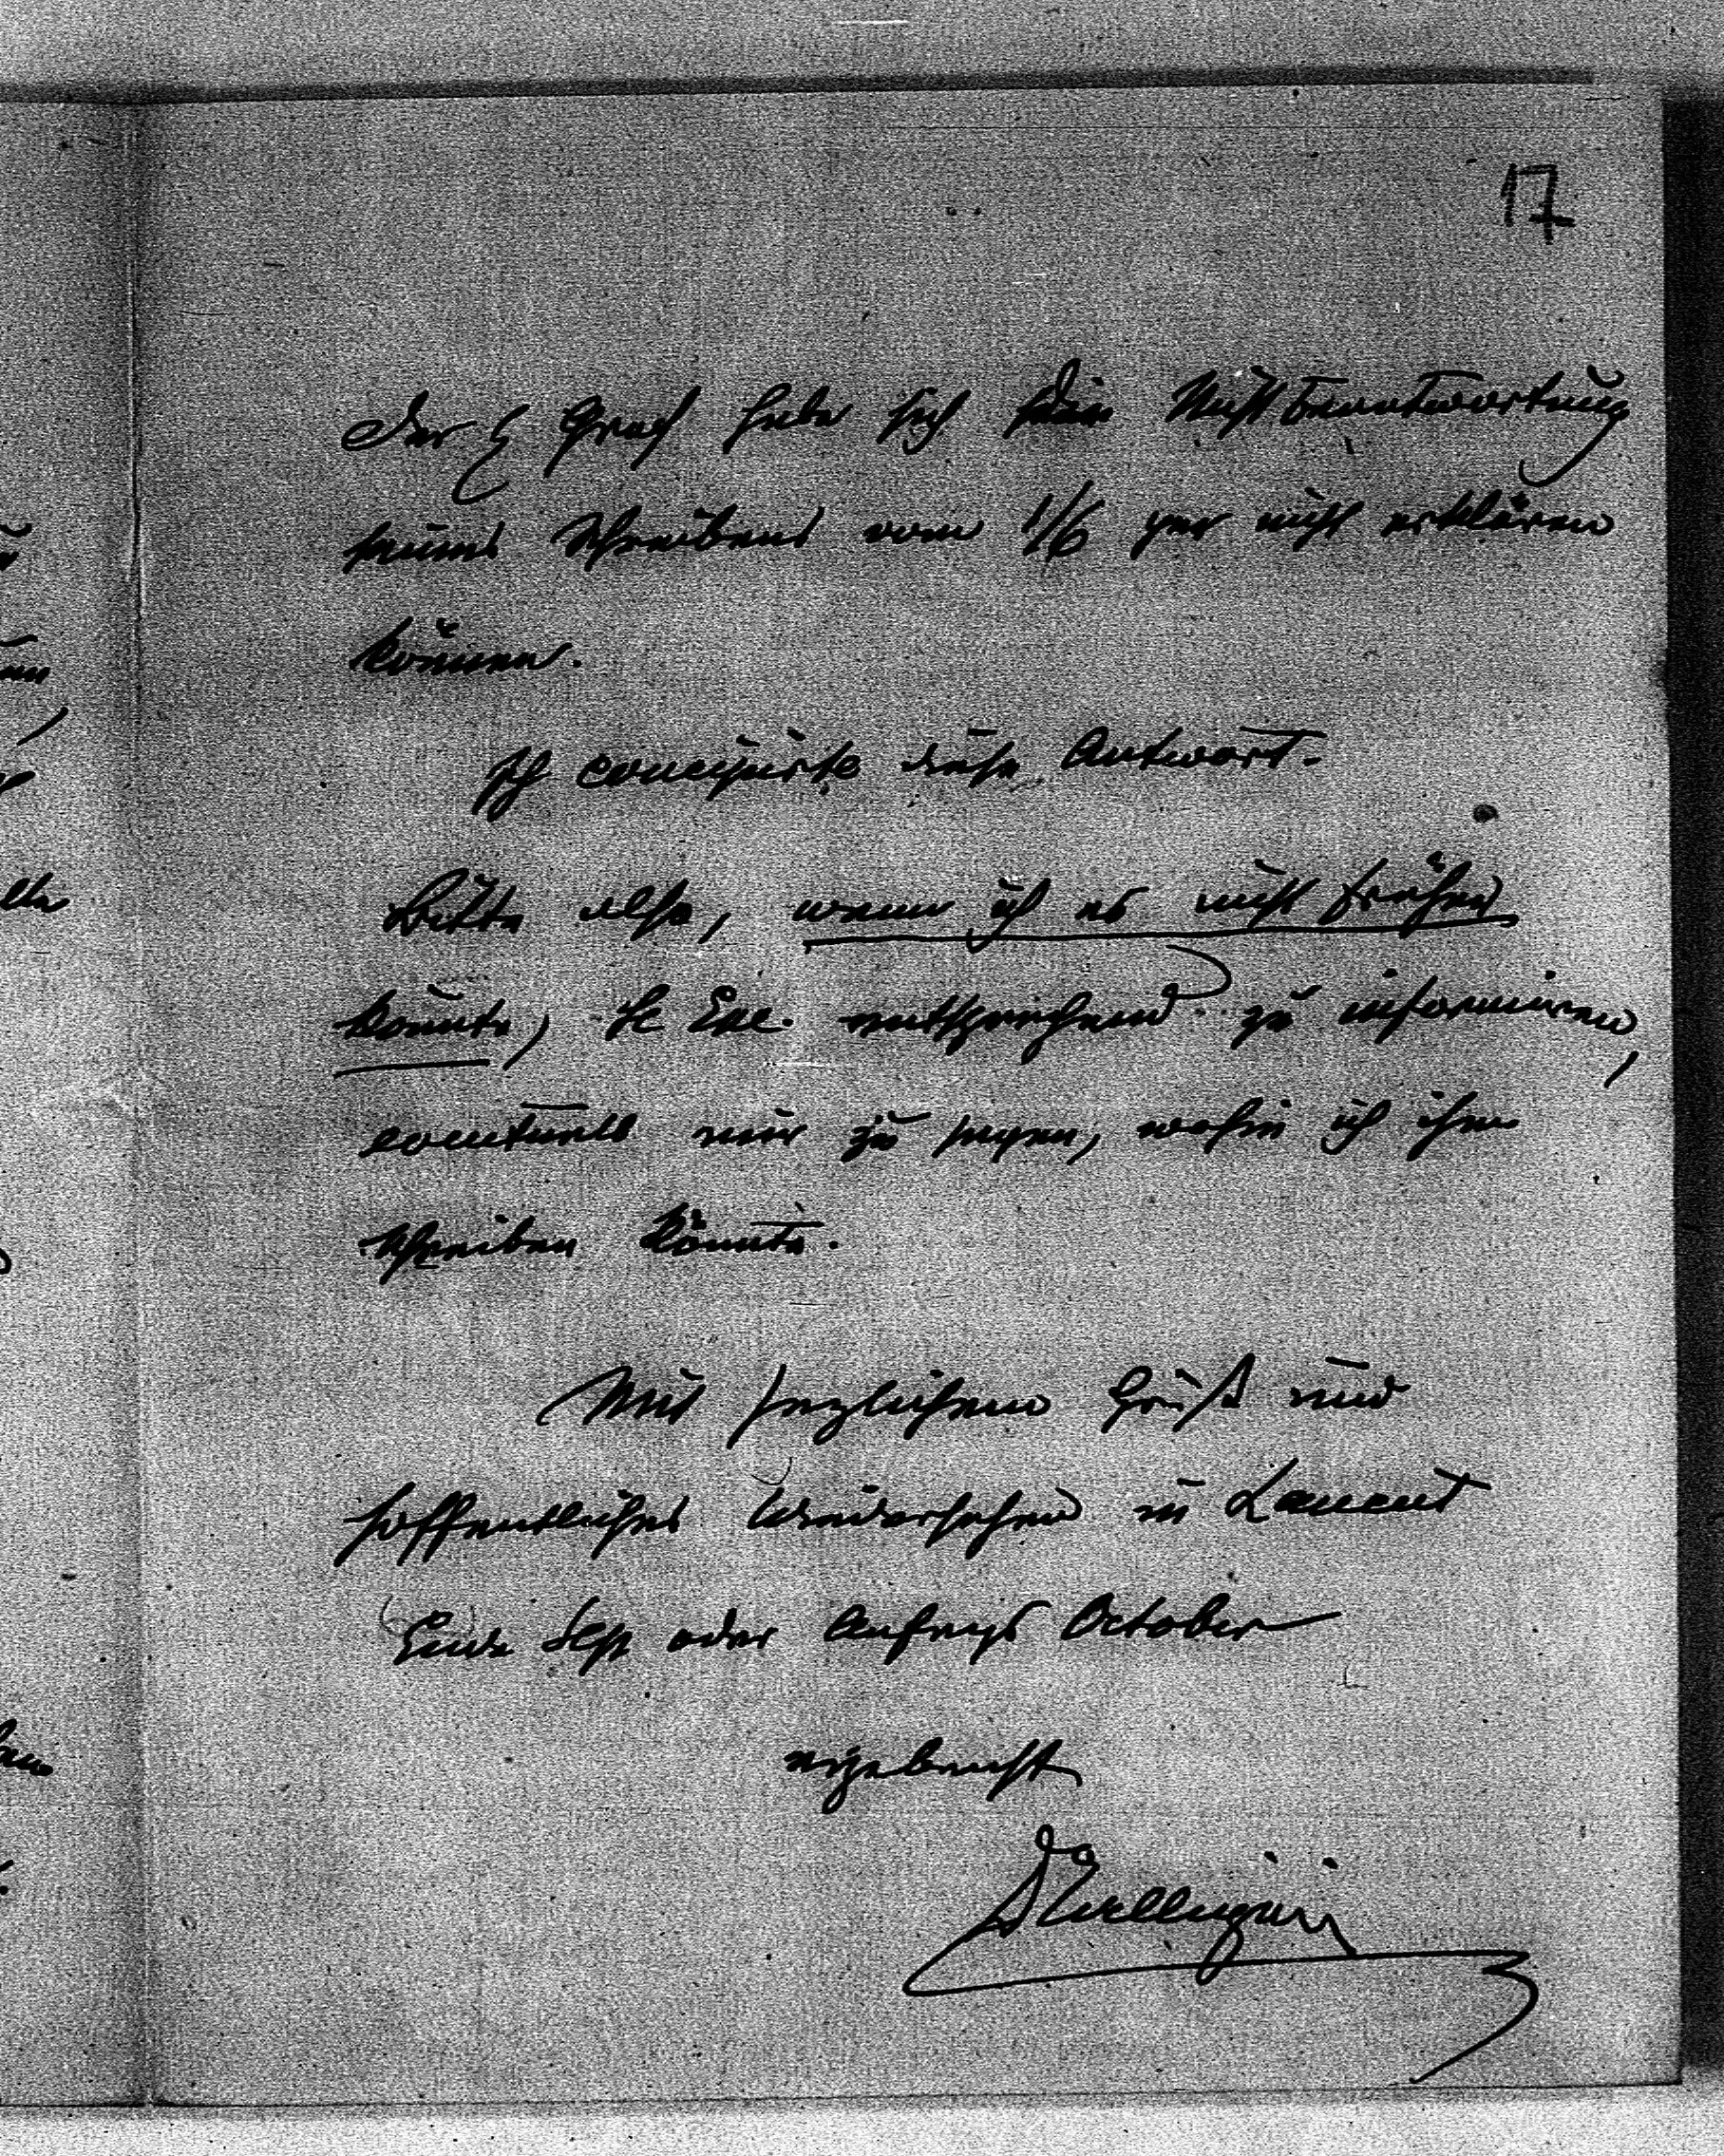 17
Der H Graf habe sich die Nichtbeantwortung
seines Schreibens vom 1/6 gar nicht erklären
können.
Ich concipirte diese Antwort.
Bitte also, wenn ich es nicht früher
könnte, Se Exc. entsprechend zu informiren,
eventuell mir zu sagen, wohin ich ihm
schreiben könnte.
Mit herzlichem Gruß und
hoffentliches Wiedersehen in Lanant
Ende Sept oder Anfangs October
ergebenst